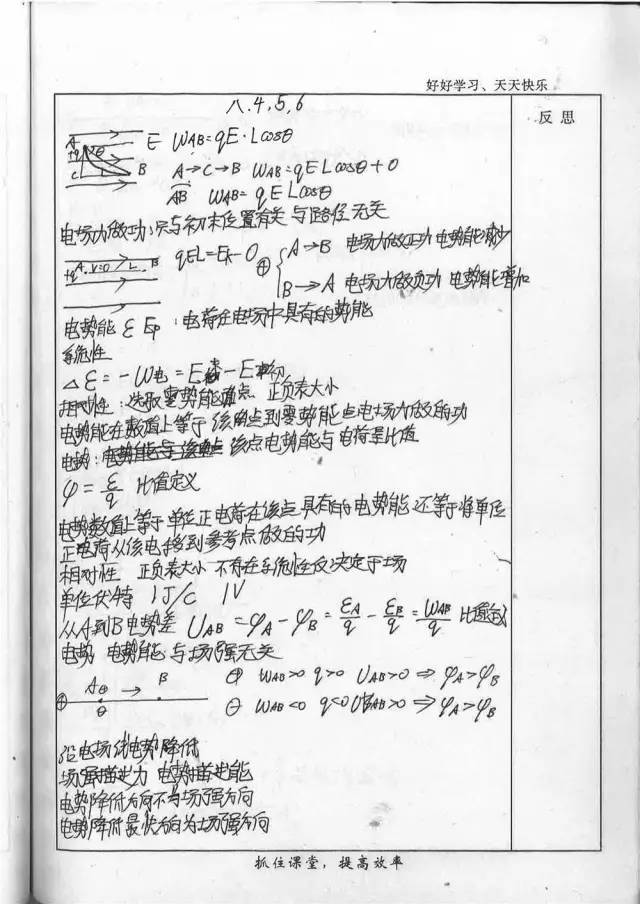 好好学习、天天快乐
反思
八.4,5,6
A E W_AB=qE·Lcosθ
+q θ
C L B A→C→B W_AB=qELcosθ+0
AB W_AB=qELcosθ
电场力做功:只与初末位置有关与路径无关
+q A V=0 L B qEL=Ek-0 ⊕ { A→B 电场力做正功 电势能减少
B→A 电场力做负功 电势能增加
电势能 ε Ep :电荷在电场中具有的势能
系统性
△ε=-W电=E末-E初
相对性:选取零势能点 正负表大小
电势能在数值上等于该点到零势能点电场力做的功
电势: 该点电势能与电荷量比值
φ=ε/q 比值定义
电势数值上等于单位正电荷在该点具有的电势能,还等于将单位
正电荷从该电移到参考点做的功
相对性 正负表大小 不存在系统性仅决定于场
单位伏特 1J/C 1V
从A到B电势差 U_AB=φ_A-φ_B=ε_A/q-ε_B/q=W_AB/q 比值式
电势 电势能 与场强无关
⊕ A⊕ → B ⊕ W_AB>0 q>0 U_AB>0 ⇒ φ_A>φ_B
θ ⊖ W_AB<0 q<0 U_AB>0 ⇒ φ_A>φ_B
沿电场线电势降低
场强描述力 电势描述能
电势降低方向不为场强方向
电势降低最快方向为场强方向
抓住课堂,提高效率